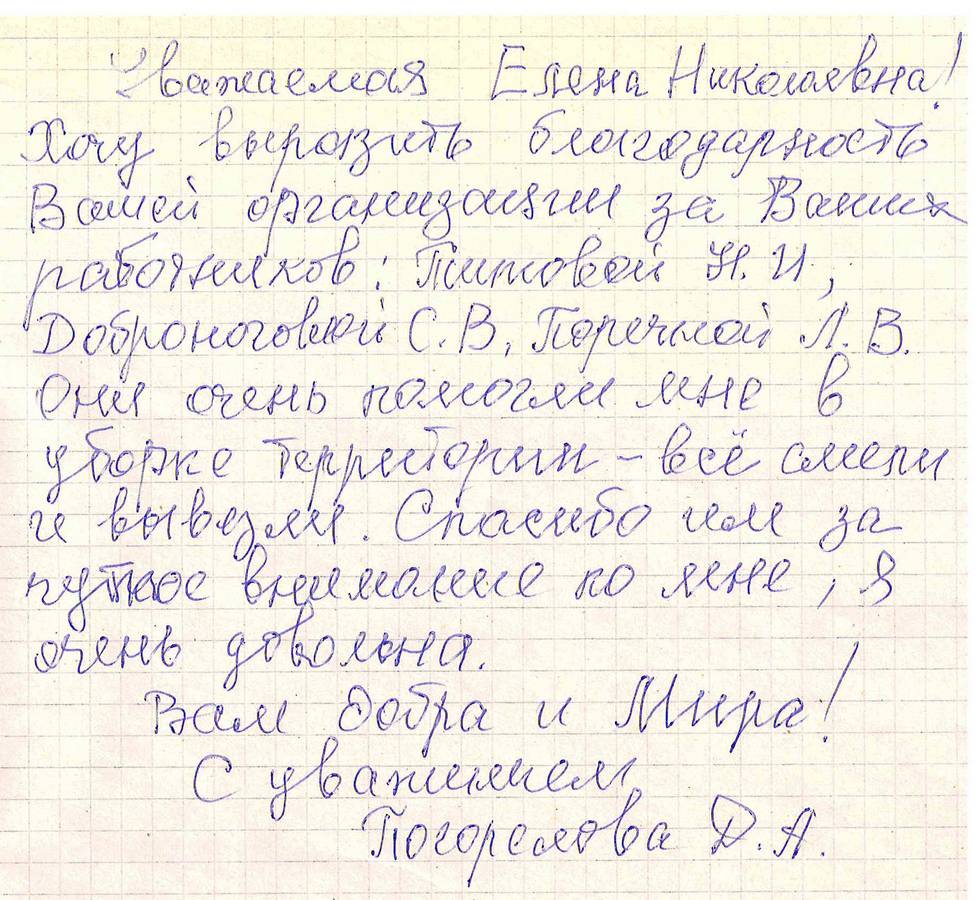 Уважаемая Елена Николаевна!
Хочу выразить благодарность
Вашей организации за Ваших
работников: Титовой Н.И.,
Доброноговой С.В., Поречной Л.В.
Они очень помогли мне в
уборке территории – всё смели
и вывезли. Спасибо им за
чуткое внимание ко мне, я
очень довольна.
Вам добра и Мира!
С уважением
Погорелова Д.А.